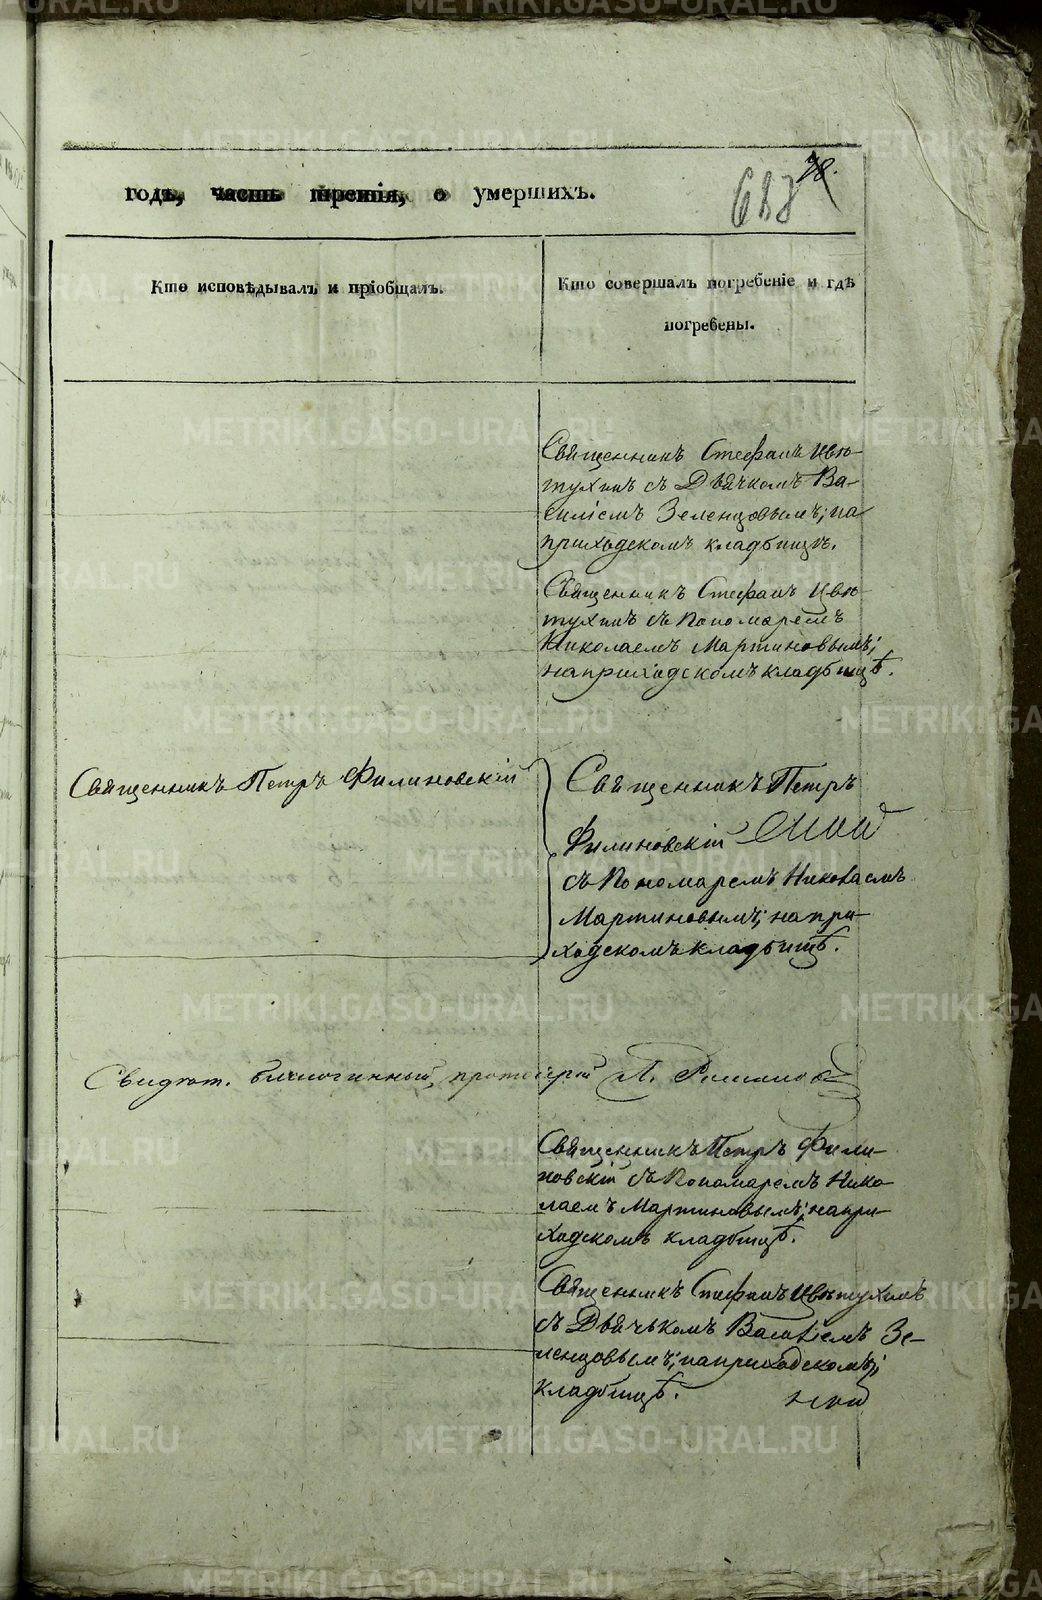 годъ, часть третія, о умершихъ.
Кто исповѣдывалъ и пріобщалъ.
Кто совершалъ погребеніе и гдѣ
погребены.
Священникъ Стефанъ Цвѣ-
тухинъ съ Дьячкомъ Ва-
силіемъ Зеленцовымъ; на
приходскомъ кладбищѣ.
Священникъ Стефанъ Цвѣ-
тухинъ съ Пономаремъ
Николаемъ Мартиновымъ;
на приходскомъ кладбищѣ.
Священникъ Петръ Филиновскій
Священникъ Петръ
Филиновскій
съ Пономаремъ Николаемъ
Мартиновымъ; на при-
ходскомъ кладбищѣ.
Свидѣт. благочинный, протоіерей
Священникъ Петръ Фили-
новскій съ Пономаремъ Нико-
лаемъ Мартиновымъ; на при-
ходскомъ кладбищѣ.
Священникъ Стефанъ Цвѣтухинъ
съ Дьячькомъ Василіемъ Зе-
ленцовымъ; на приходскомъ
кладбищѣ.
METRIKI.GASO-URAL.RU